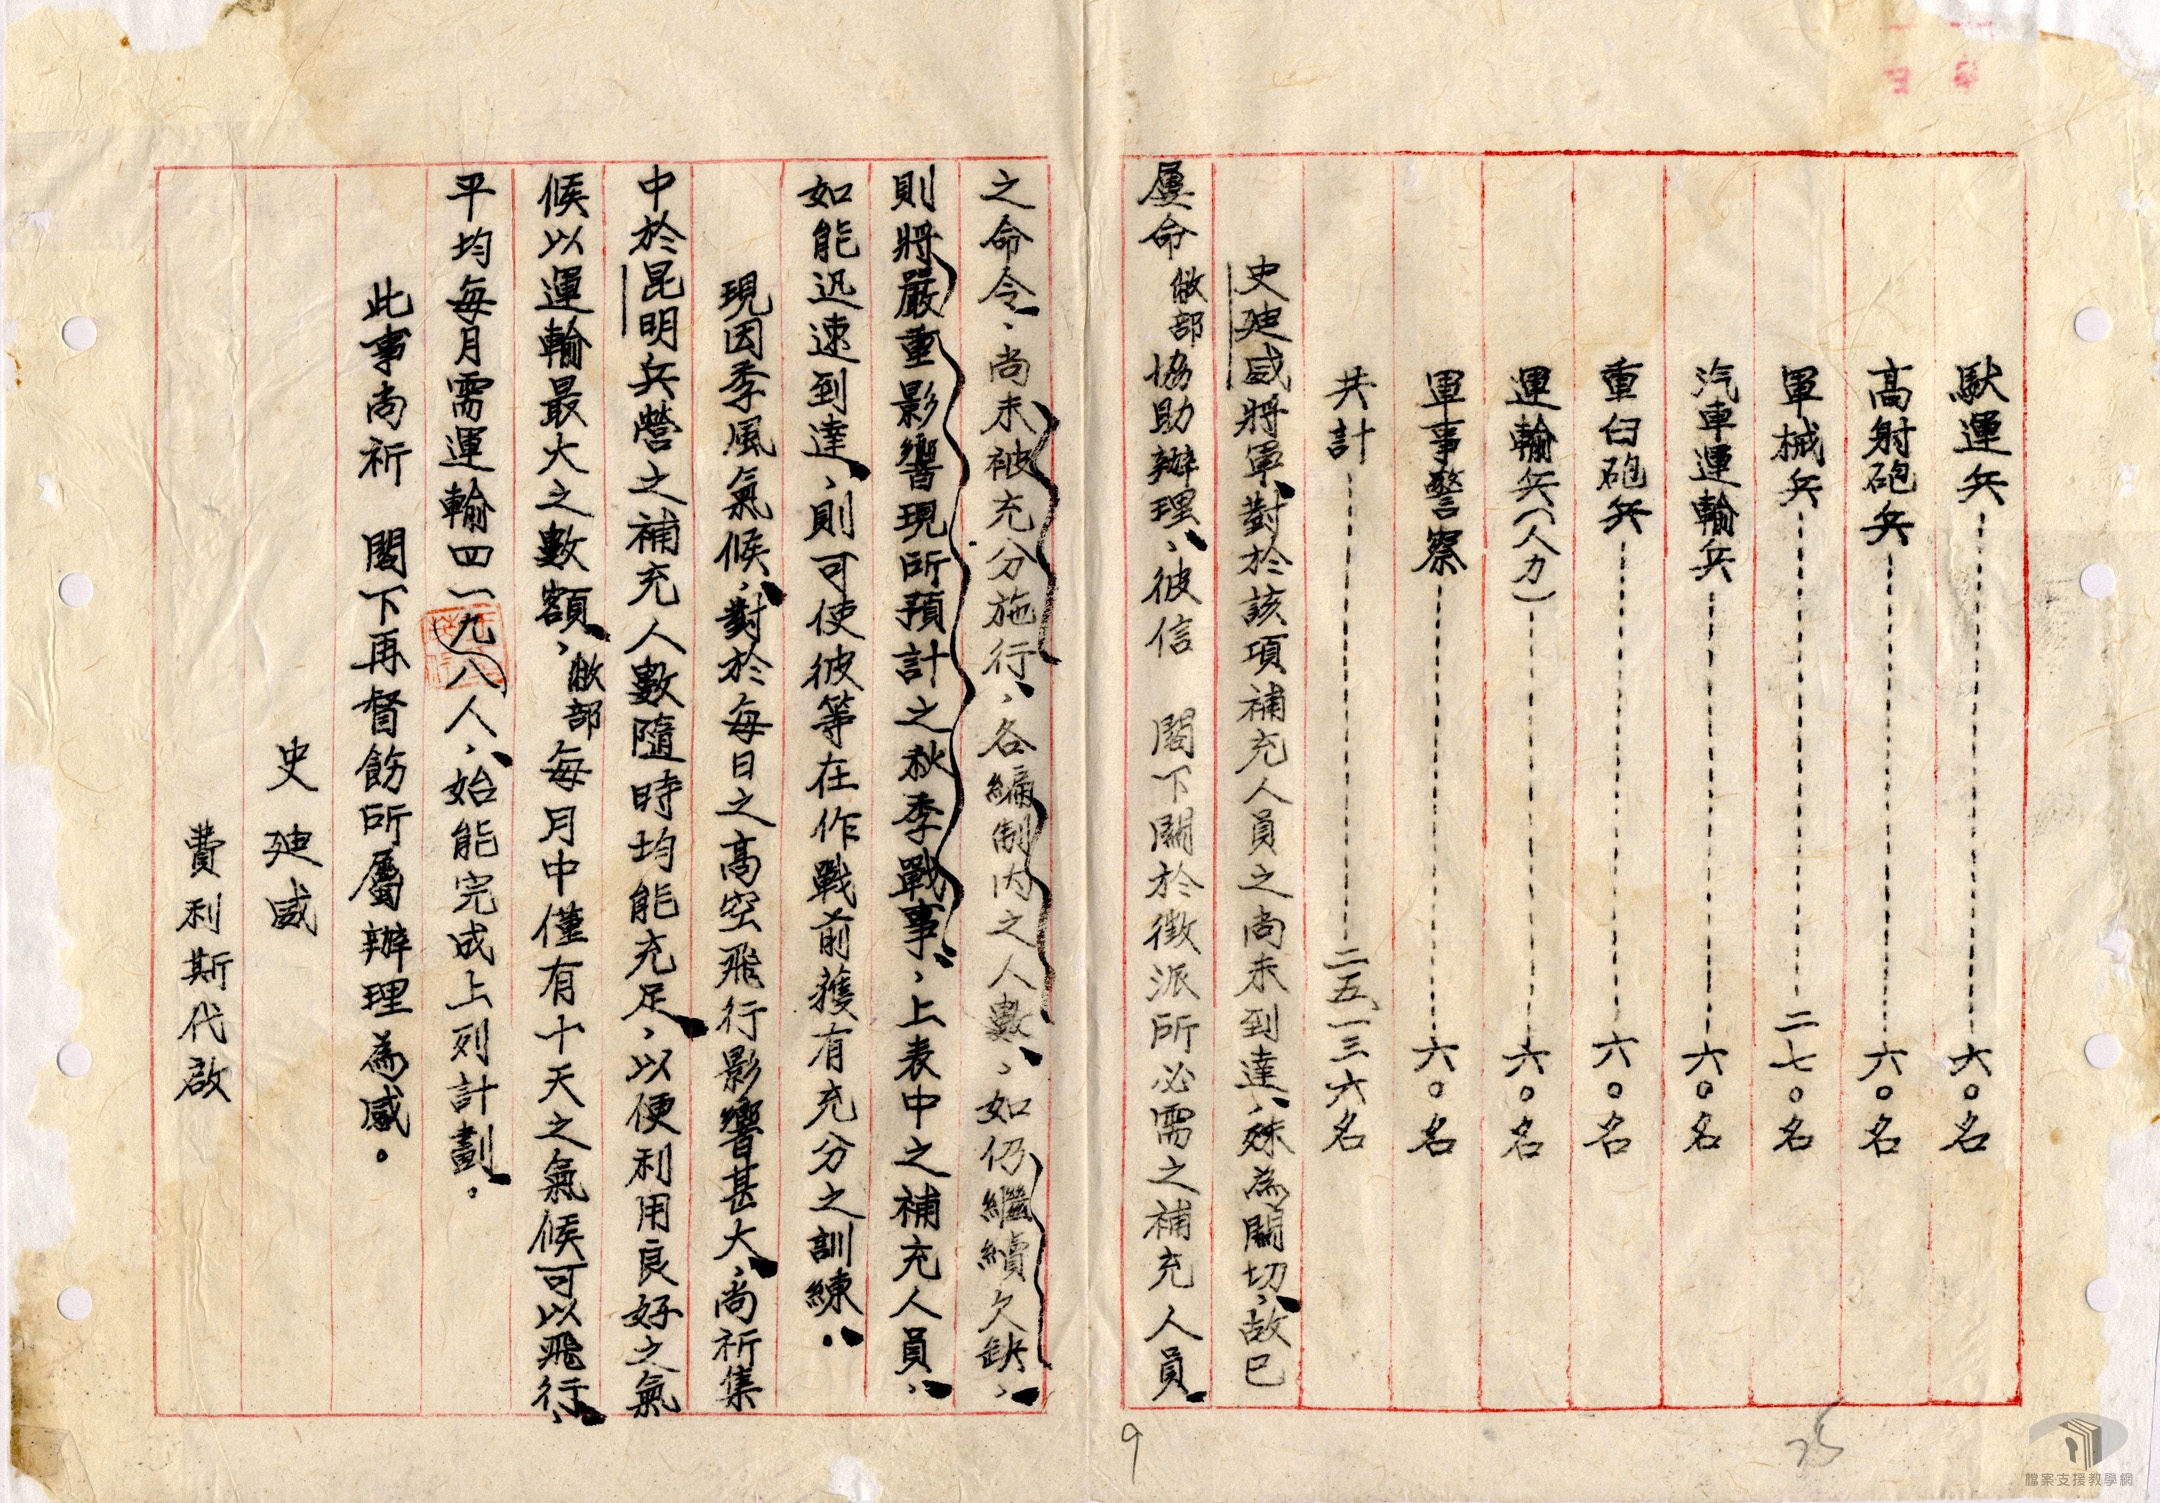 馱運兵 六〇名
高射砲兵 六〇名
軍械兵 二七〇名
汽車運輸兵 六〇名
重臼砲兵 六〇名
運輸兵(人力) 六〇名
軍事警察 六〇名
共計 二五、一三六名
史廸威將軍、對於該項補充人員之尚未到達、殊為關切、故已
屢命敝部協助辦理、彼信 閣下關於徵派所必需之補充人員
之命令、尚未被充分施行、各編制內之人數、如仍繼續欠缺、
則將嚴重影響現所預計之秋季戰事、上表中之補充人員、
如能迅速到達、則可使彼等在作戰前獲有充分之訓練。
現因季風氣候、對於每日之高空飛行影響甚大、尚祈集
中於昆明兵營之補充人數隨時均能充足、以便利用良好之氣
候以運輸最大之數額、敝部每月中僅有十天之氣候可以飛行、
平均每月需運輸四一九八人、始能完成上列計劃。
此事尚祈 閣下再督飭所屬辦理為感。
史廸威
費利斯代啟
9
25
檔案支援教學網